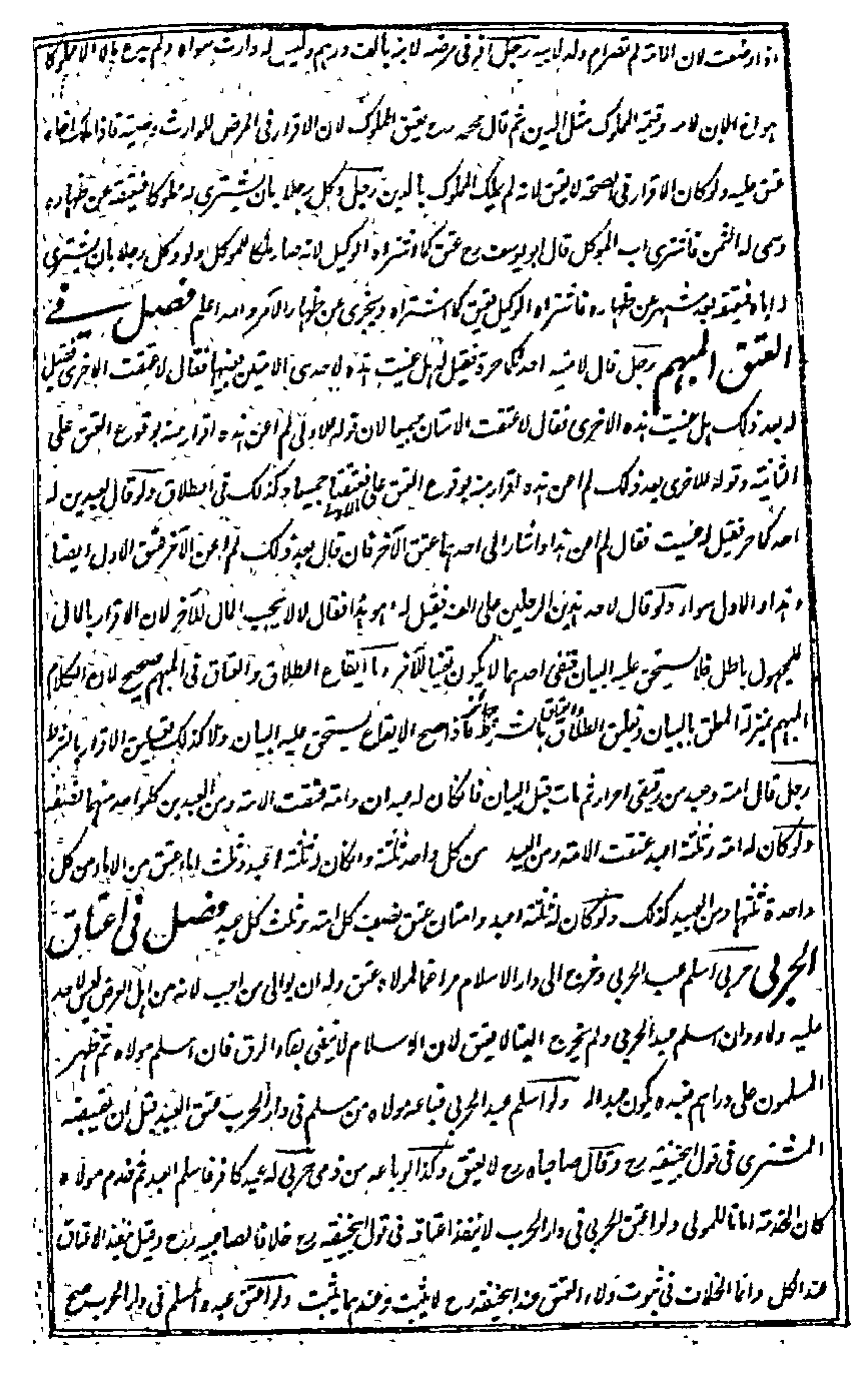 اذا وضعت لان الامة لم تصر ام ولد لابيه رجل اقر في مرضه لابنه بالف درهم وليس له وارث سواه ولم يدع مالا الا مملوكا
هو اخ الابن لامه وقيمة المملوك مثل الدين ثم قال محمد رح يعتق المملوك لان الاقرار في المرض للوارث وصية فاذا ملك اخاه
عتق عليه ولو كان الاقرار في الصحة لا يعتق لانه لم يملك المملوك بالدين رجل وكل رجلا بان يشتري له مملوكا فيعتقه عن ظهاره
وسمى له الثمن فاشترى اب الموكل قال ابو يوسف رح عتق كما اشتراه الوكيل لانه صار ملكا للموكل ولو وكل رجلا بان يشتري
له اباه فيعتقه بعد شهر عن ظهاره فاشتراه الوكيل يعتق كما اشتراه ويجزي عن ظهار الآمر والله اعلم فصل في
العتق المبهم رجل قال لامتيه احدكما حرة فقيل له هل عنيت هذه لاحدى الامتين بعينها فقال لا عتقت الاخرى فقيل
له بعد ذلك هل عنيت هذه الاخرى فقال لا عتقت الامتان جميعا لان قوله للاولى لم اعن هذه اقرار منه بوقوع العتق على
الثانية وقوله للاخرى بعد ذلك لم اعن هذه اقرار منه بوقوع العتق على الاولى فعتقتا جميعا وكذلك في الطلاق ولو قال لعبدين له
احدكما حر فقيل له عنيت فقال لم اعن هذا واشار الى احدهما عتق الآخر فان قال بعد ذلك لم اعن الآخر عتق الاول ايضا
وهذا والاول سواء ولو قال لاحد هذين الرجلين علي الف فقيل له اهو هذا فقال لا لا يجب المال للآخر لان الاقرار بالمال
للمجهول باطل فلا يستحق عليه البيان فنفى احدهما لا يكون تعيينا للآخر واما ايقاع الطلاق والعتاق في المبهم صحيح لان الكلام
المبهم بمنزلة المعلق بالبيان وتعليق الطلاق والعتاق بالشرط جائز فاذا صح الايقاع يستحق عليه البيان ولا كذلك تعليق الاقرار بالشرط
رجل قال امة وعبد من رقيقي احرار ثم مات قبل البيان فان كان له عبدان وامة فعتقت الامة ومن العبدين كل واحد منهما نصفه
ولو كان له امة وثلثة اعبد عتقت الامة ومن العبيد من كل واحد ثلثه وان كان له ثلثة اعبد وثلث اماء عتق من الاماء من كل
واحدة ثلثها ومن العبيد كذلك ولو كان له ثلثة اعبد وامتان عتق نصف كل امة وثلث كل عبد فصل في اعتاق
الحربي حربي اسلم عبد الحربي وخرج الى دار الاسلام مراغما لمولاه عتق وله ان يوالي من احب لانه من اهل الحرب ليس لاحد
عليه ولاء وان اسلم عبد الحربي ولم يخرج الينا لا يعتق لان الاسلام لا ينفي بقاء الرق فان اسلم مولاه ثم ظهر
المسلمون على دارهم فعبده يكون عبدا له ولو اسلم عبد الحربي فباعه مولاه من مسلم في دار الحرب عتق العبد قبل ان يقبضه
المشتري في قول ابيحنيفة رح وقال صاحباه رح لا يعتق وكذا لو باعه من ذمي حربي له عبد كافر فاسلم العبد ثم قدم مولاه
كان امانا للمولى ولو اعتق الحربي في دار الحرب لا ينفذ اعتاقه في قول ابيحنيفة رح خلافا لصاحبيه رح وقيل ينفذ الاعتاق
عند الكل وانما الخلاف في ثبوت ولاء العتق عند ابيحنيفة رح لا يثبت وعندهما يثبت ولو اعتق عبده المسلم في دار الحرب صح